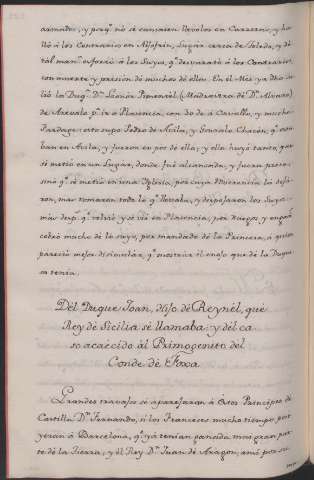 armados, y porq̃ no se sumasen llevolos en Carreras, y ha
lló à los Contrarios en Alfofrin, Lugar cerca de Toledo, y de
tál maña esforzó à los Suyos, q̃ desvarató à los Contrarios,
con muerte y prisión de muchos de ellos. En el Mes ya dho sa
lió la Duq.ª D.ª Leonor Pimentèl (Madrastra de D.ⁿ Alvaro)
de Arevalo p.ª ir à Plasencia, con 80 de à Cavallo, y mucho
Fardage: esto supo Pedro de Avila, y Gonzalo Chacón, q̃ esta
ban en Avila, y fueron en pos de ella, y ella huyó tanto, que
se metió en un Lugar, donde fué alcanzada, y fuera presa,
sino q̃ se metió en una Iglesia, por cuya reverencia la deja
ron, mas tomaron todo lo q̃ llevaba, y despojaron los Suyos
más desp.s q̃ volvió y se vió en Plasencia, por ruegos y engaños
cobró mucho de lo suyo, por mandado de la Princesa, à quien
pareció mejor disimular, q̃ mostrar el enojo que de la Duque
sa tenia.
Dèl Duque Joan, Hijo de Reynèl, què
Rey de Sicilia sè llamaba: y dèl ca
so acaecido àl Primogenito del
Conde dè Foxa
Grandes travajos sè aparejaron à Estos Principes de
Castilla D.ⁿ Fernando, si los Franceses mucho tiempo por
yeran à Barcelona, q̃ ya tenian ganada mui gran par
te dè la Tierra, y èl Rey D.ⁿ Juan de Aragon, aun por su